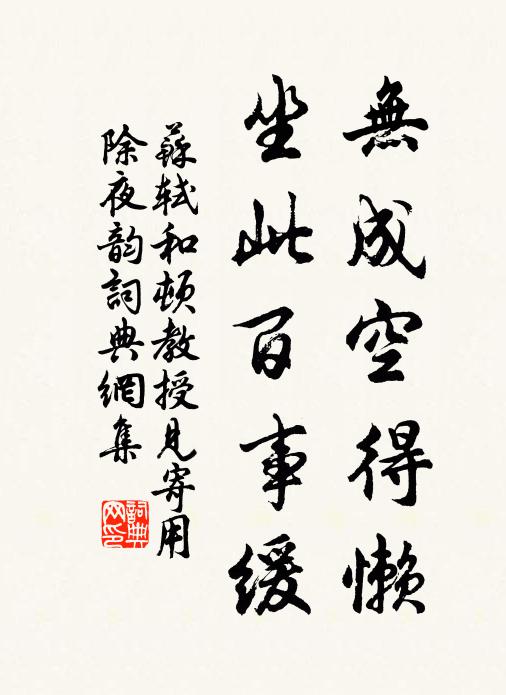 無成空得懶
坐此百事緩
蘇軾和頓教授見寄用
除夜韵詞典網集
詞典网印